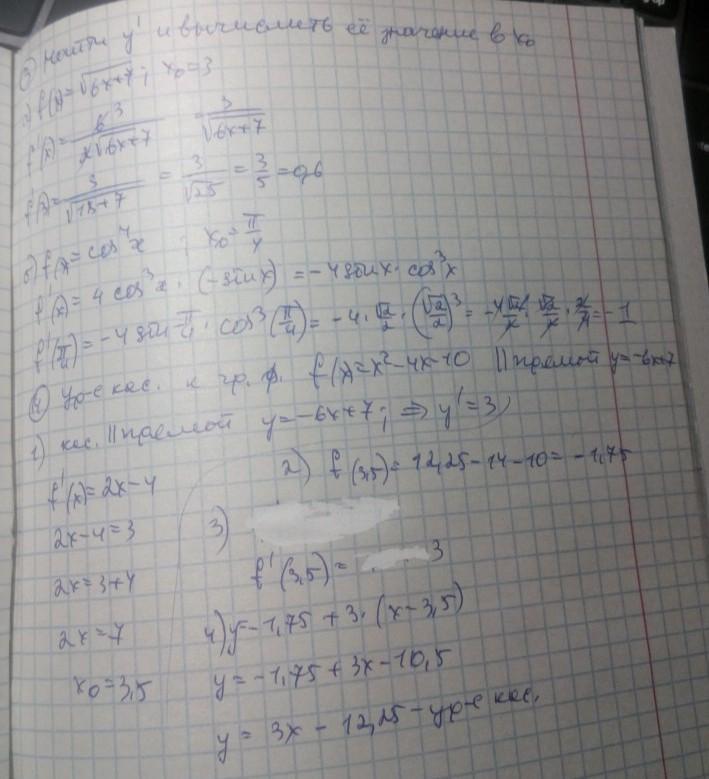 ③ Найти y' и вычислить её значение в x₀
а) f(x)=√6x+7; x₀=3
f'(x)= 6 3 / 2√6x+7 3/√6x+7
f'(3)= 3/√18+7 = 3/√25 = 3/5 = 0,6
б) f(x)=cos⁴x ; x₀=π/4
f'(x)=4cos³x·(-sinx)=-4sinx·cos³x
f'(π/4)=-4sin π/4·cos³(π/4)=-4·√2/2·(√2/2)³=-4√2/2·√2/2·2/4=-1
④ Ур-е кас. к гр. ф. f(x)=x²-4x-10 || прямой y=-6x+7
1) кас. || прямой y=-6x+7; ⇒ y'=3
f'(x)=2x-4
2x-4=3
2x=3+4
2x=7
x₀=3,5
2) f(3,5)=12,25-14-10=-1,75
3)
f'(3,5)= 3
4) y=-1,75+3·(x-3,5)
y=-1,75+3x-10,5
y=3x-12,25-ур-е кас.